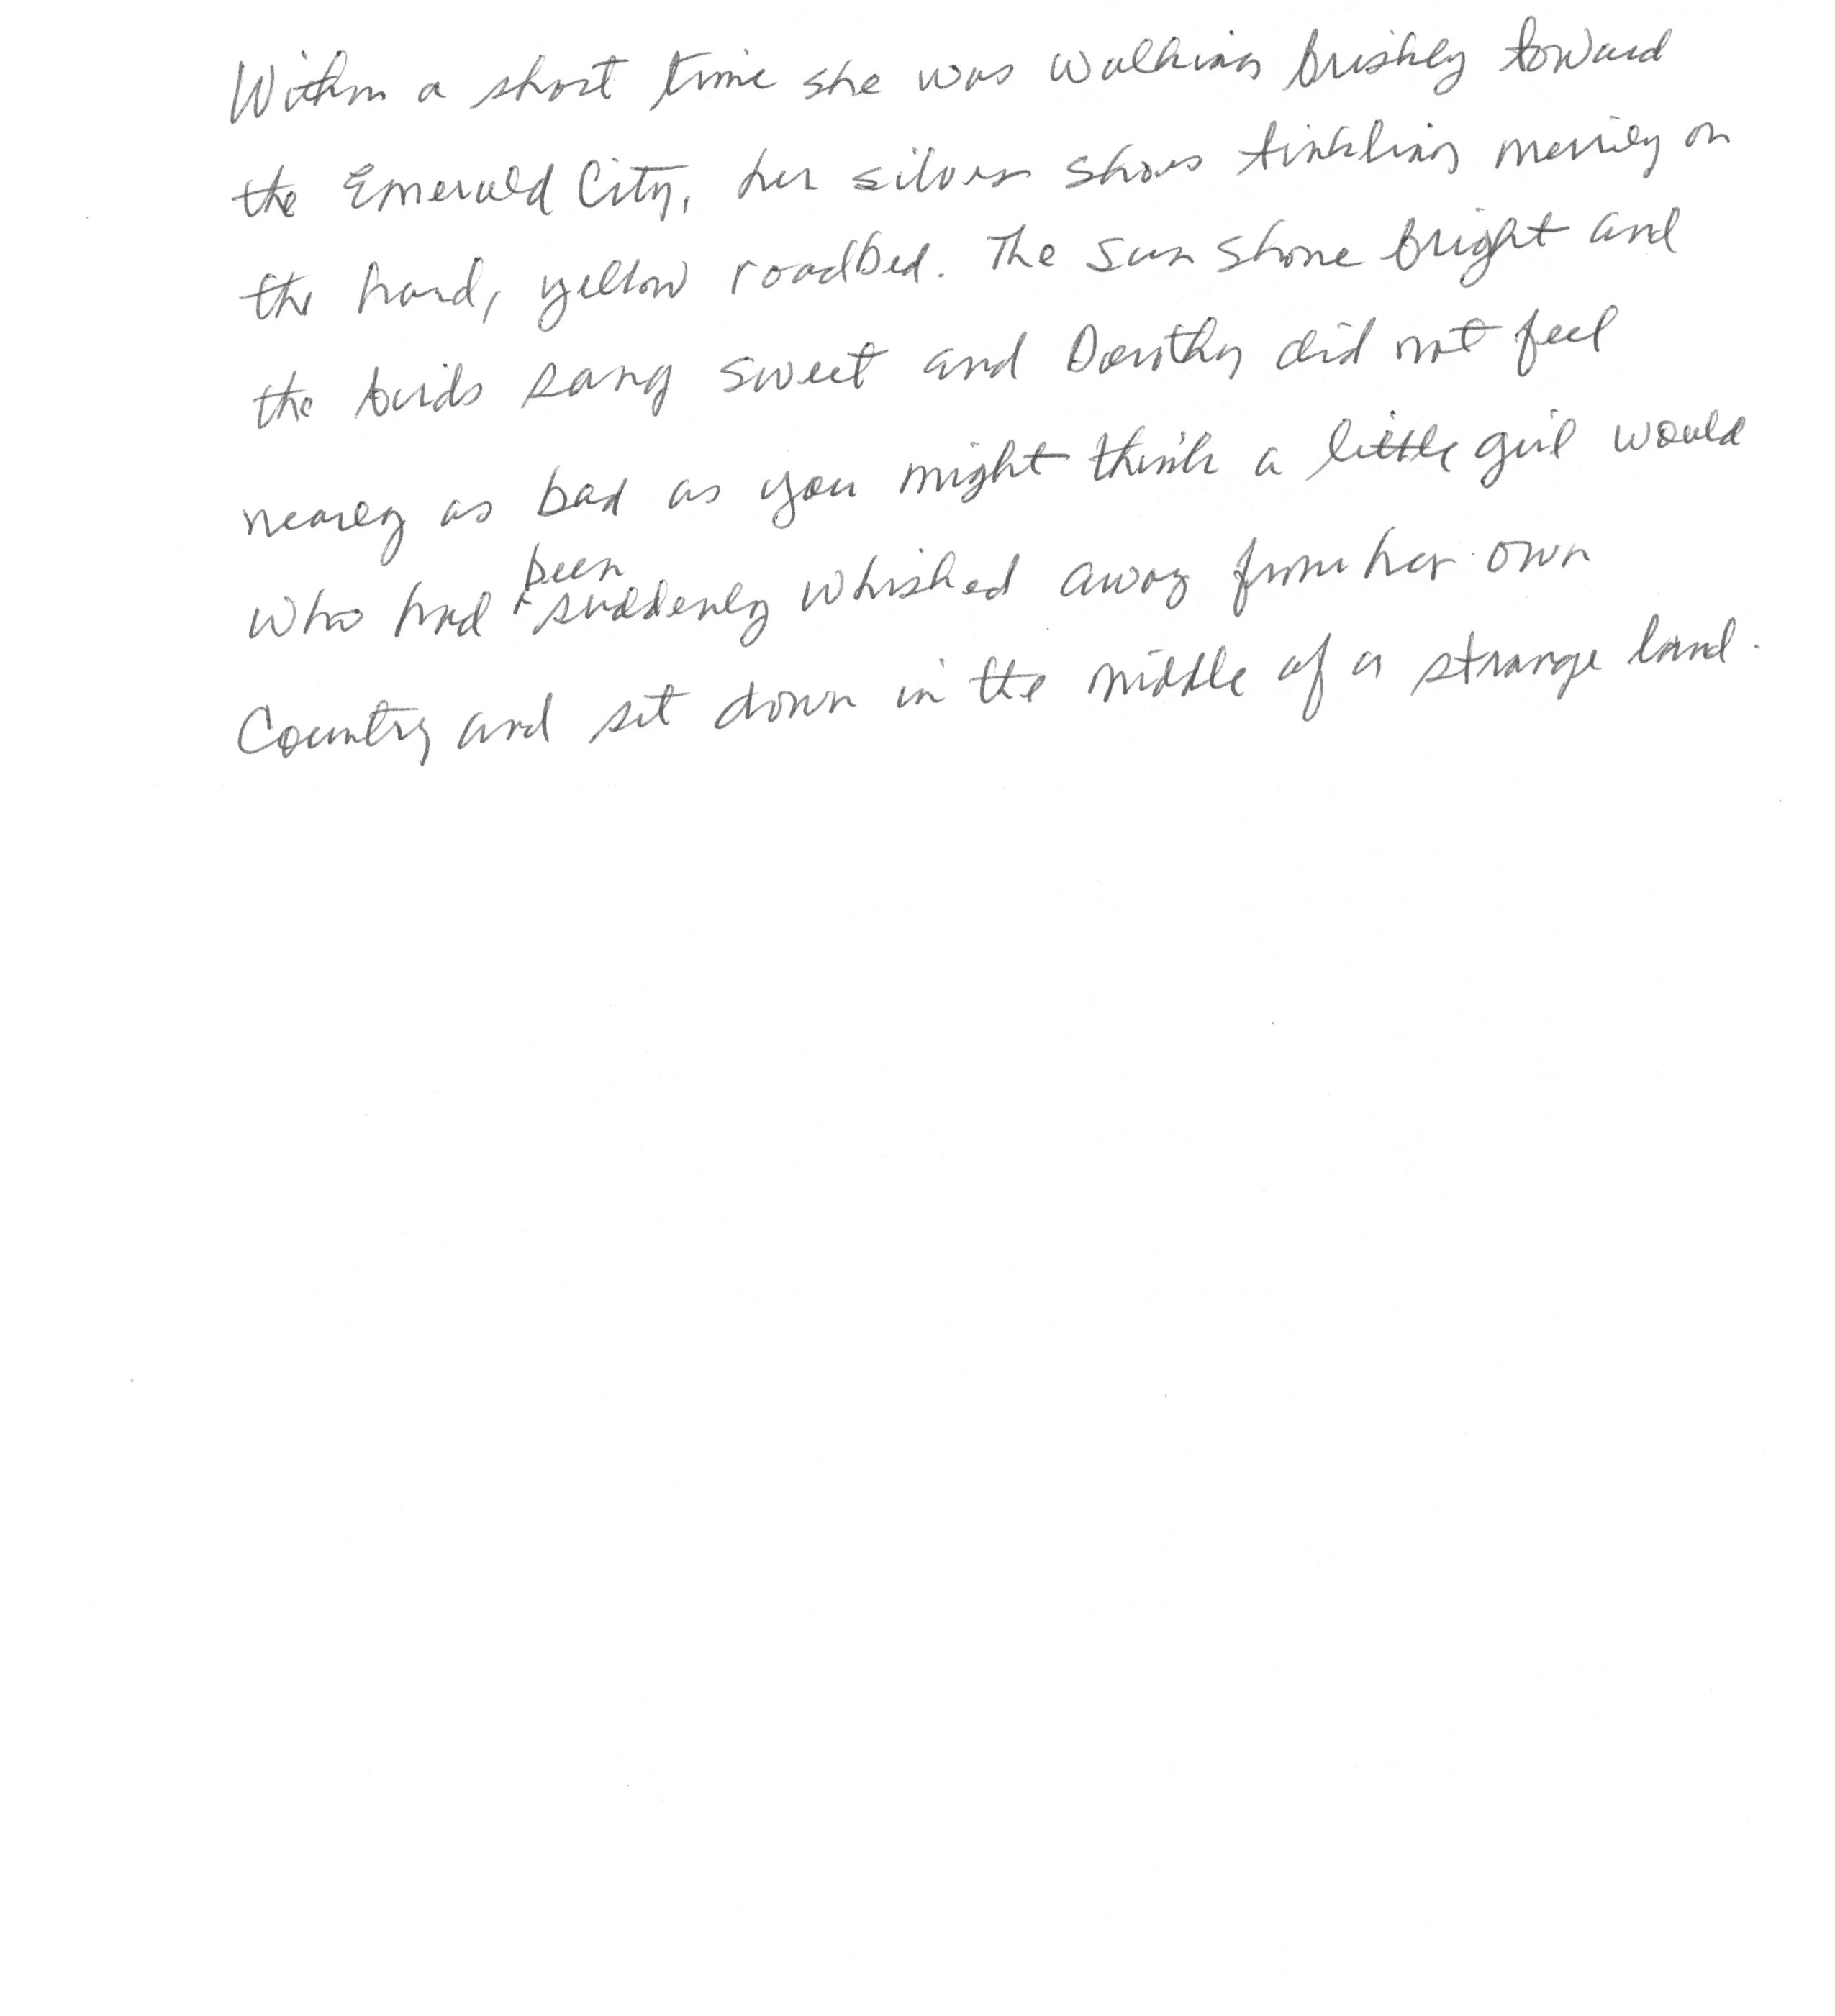 Within a short time she was walking briskly toward
the Emerald City, her silver shoes tinkling merrily on
the hard, yellow roadbed. The sun shone bright and
the birds sang sweet and Dorothy did not feel
nearly as bad as you might think a little girl would
who had been suddenly whisked away from her own
Country and set down in the middle of a strange land.